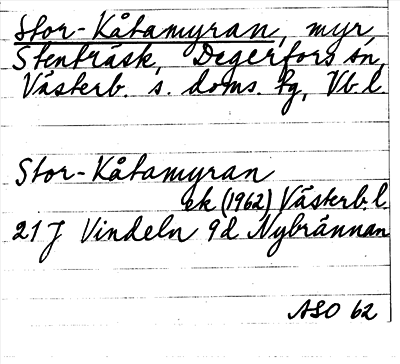 Stor-Kåtamyran, myr,
Stenträsk, Degerfors sn,
Västerb. s. doms. fg, Vb l.
Stor-Kåtamyran
ek (1962) Västerb. l.
21 J Vindeln 9d Nybrännan
ASO 62